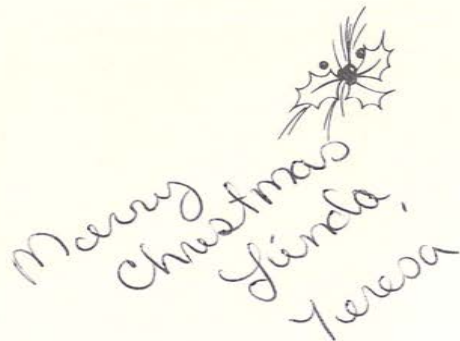 Merry
Christmas
Linda,
Teresa